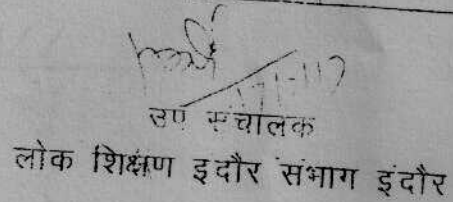 उप संचालक
लोक शिक्षण इदौर संभाग इंदौर